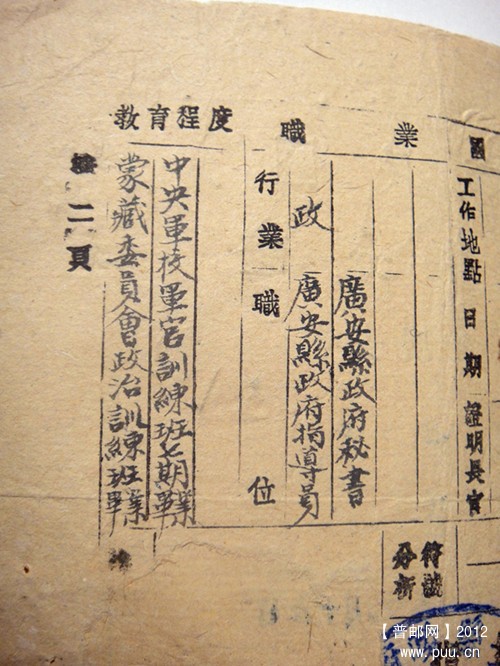 教育程度
職業
國
工作地點
日期
證明長官
廣安縣政府秘書
政
廣安縣政府指導員
行業
職
位
中央軍校軍官訓練班七期畢業
蒙藏委員會政治訓練班畢業
二頁
符識
分析
【普邮网】2012
www.puu.cn